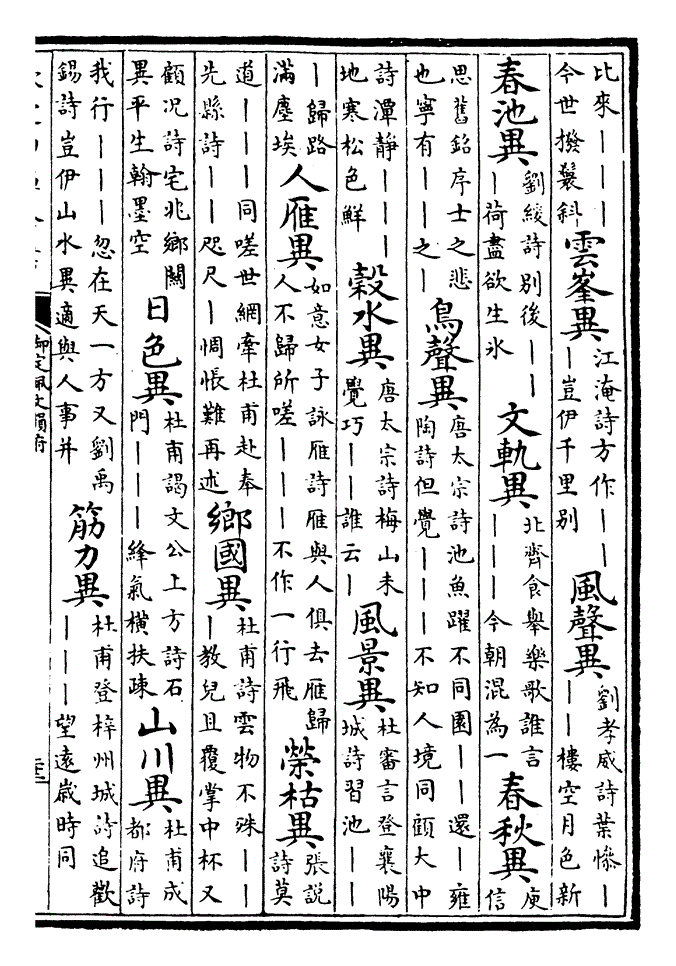 比來｜｜｜
今世撥鬟斜
雲峯異
江淹詩方作｜｜
｜豈伊千里別
風聲異
劉孝威詩葉慘｜
｜｜樓空月色新
春池異
劉緩詩別後｜｜
｜荷盡欲生氷
文軌異
北齊食舉樂歌誰言
｜｜｜今朝混為一
春秋異
庾
信
思舊銘序士之悲
也寧有｜｜之｜
鳥聲異
唐太宗詩池魚躍不同園｜｜還｜雍
陶詩但覺｜｜｜不知人境同顧大中
詩潭靜｜｜｜
地寒松色鮮
穀水異
唐太宗詩梅山未
覺巧｜｜誰云｜
風景異
杜審言登襄陽
城詩習池｜｜
｜歸路
滿塵埃
人雁異
如意女子詠雁詩雁與人俱去雁歸
人不歸所嗟｜｜｜不作一行飛
榮枯異
張說
詩莫
道｜｜｜同嗟世網牽杜甫赴奉
先縣詩｜｜咫尺｜惆悵難再述
鄉國異
杜甫詩雲物不殊｜｜
｜教兒且覆掌中杯又
顧况詩宅兆鄉關
異平生翰墨空
日色異
杜甫謁文公上方詩石
門｜｜｜絳氣橫扶疎
山川異
杜甫成
都府詩
我行｜｜｜忽在天一方又劉禹
錫詩豈伊山水異適與人事并
筋力異
杜甫登梓州城詩追歡
｜｜｜望遠歲時同
御定佩文韻府